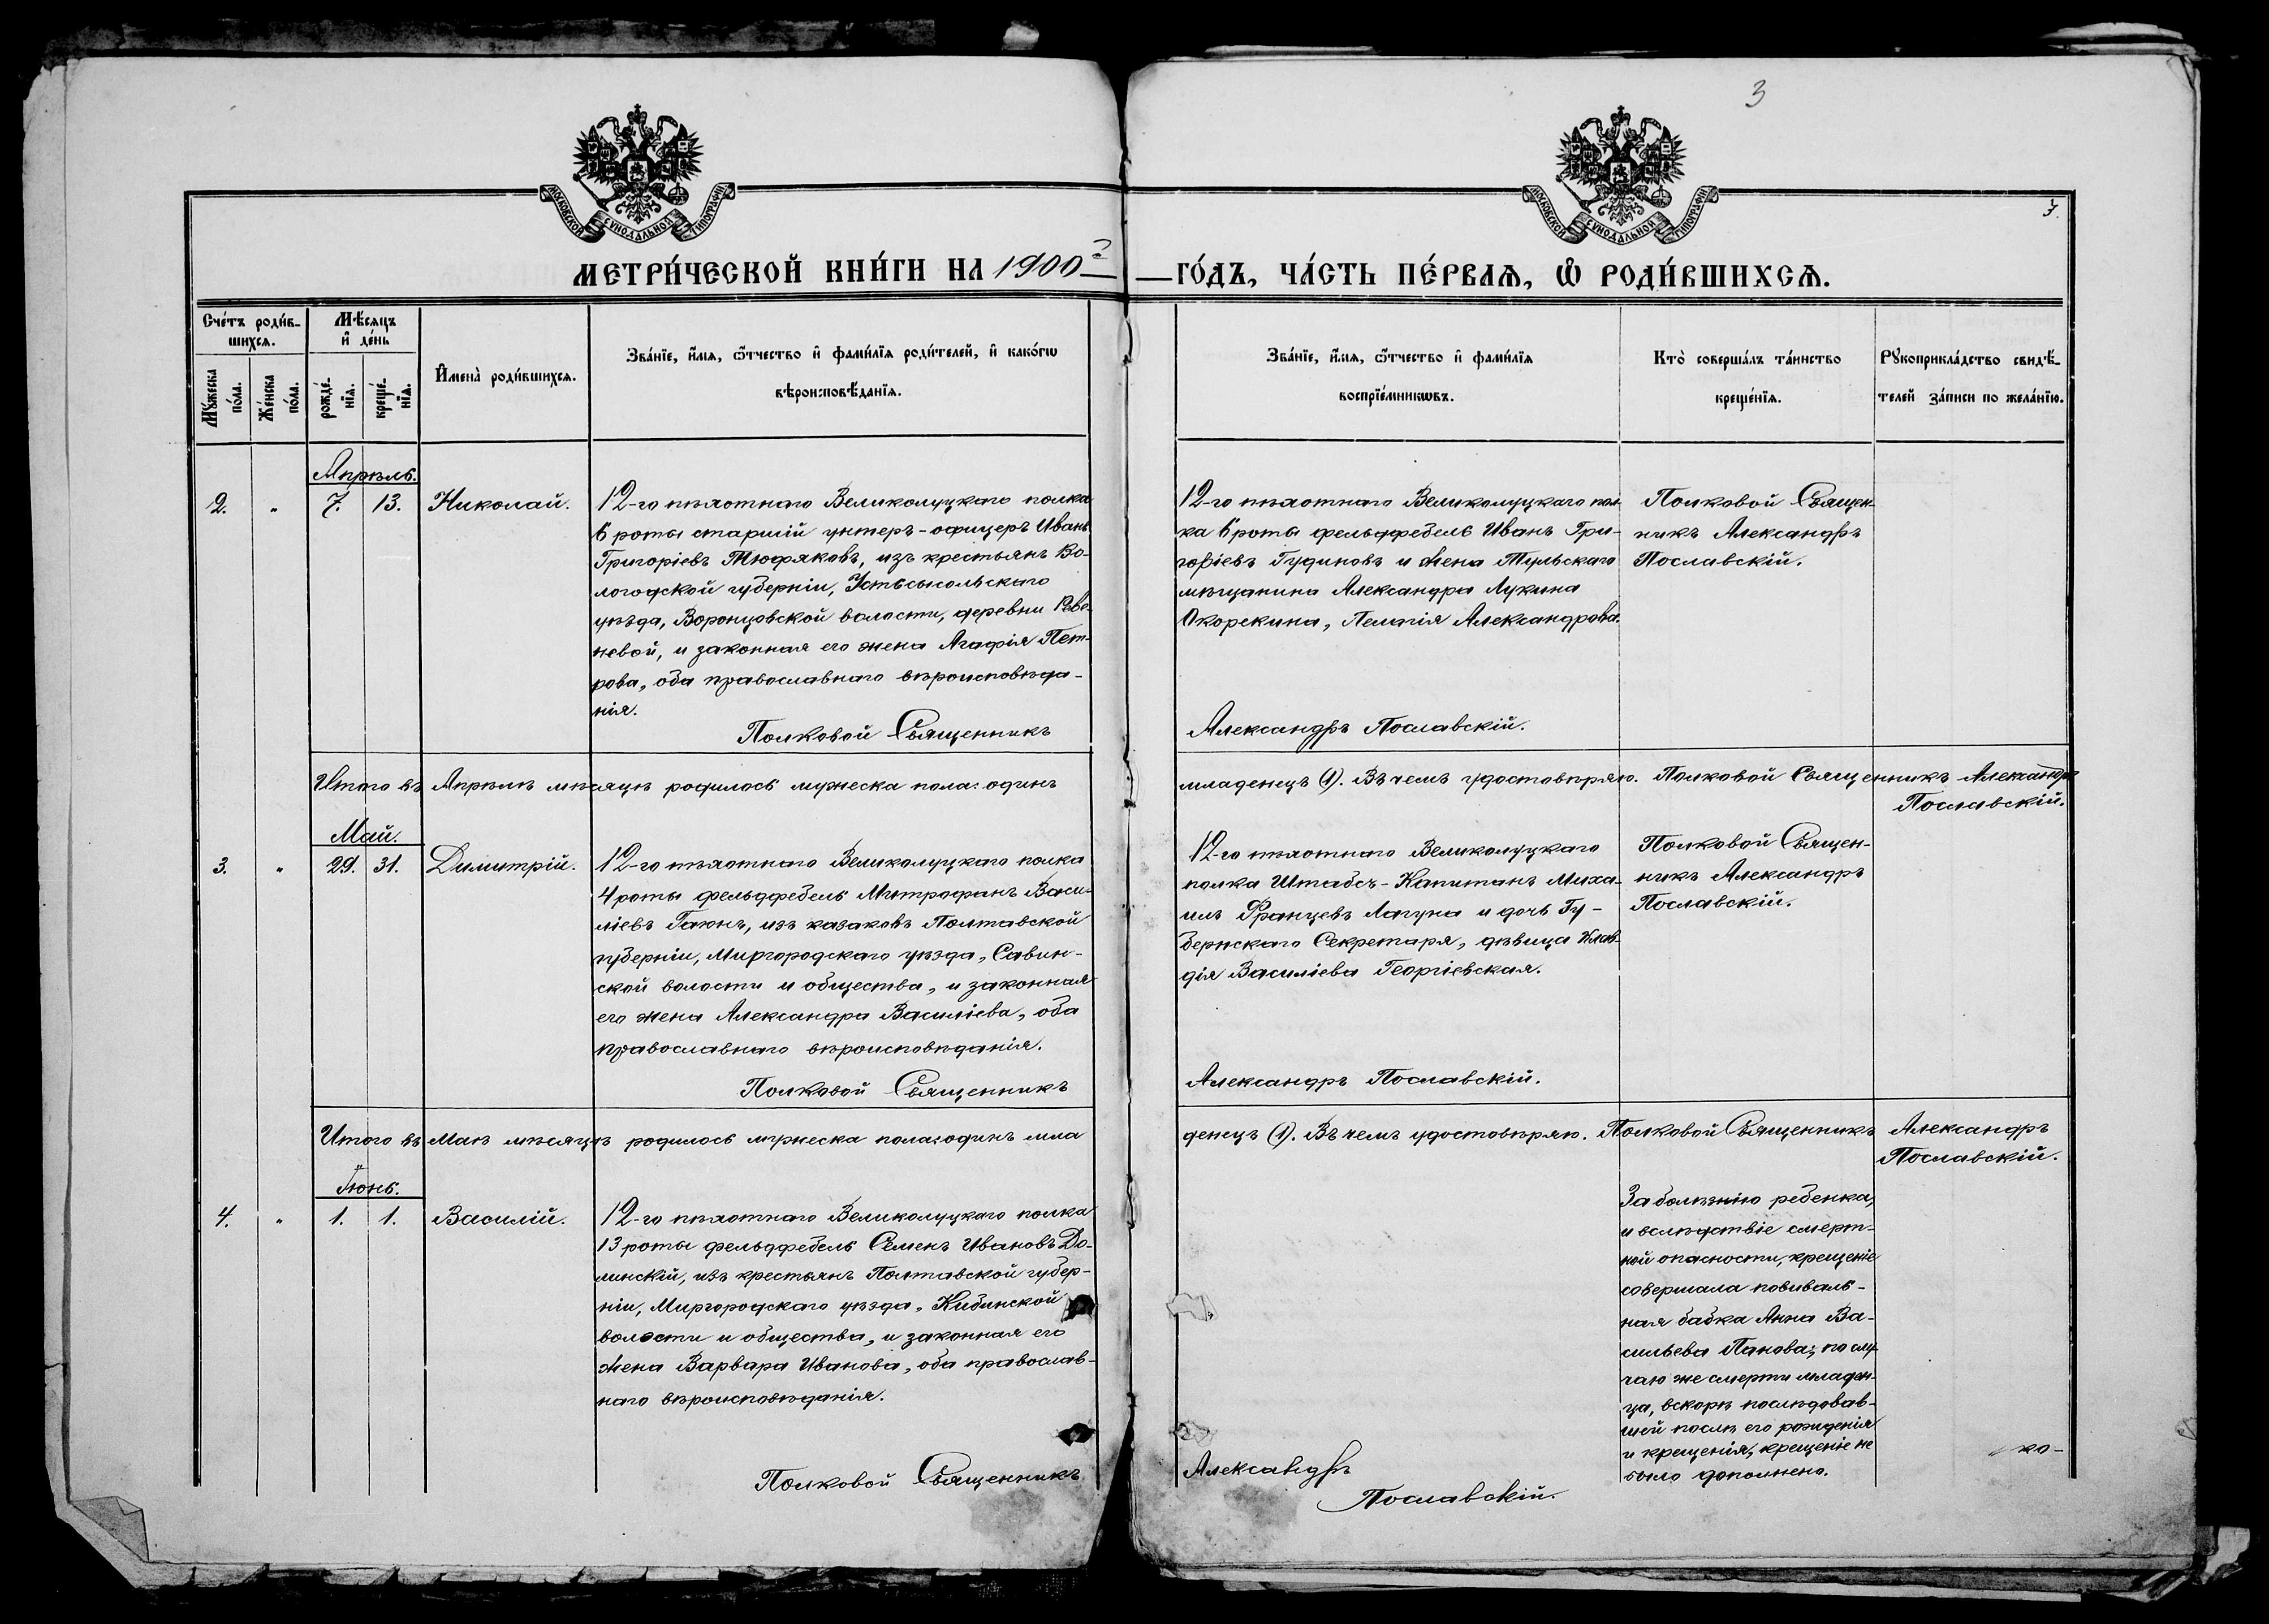 3
3.
МОСКОВСКОЙ СѴНОДАЛЬНОЙ ТИПОГРАФІИ
МОСКОВСКОЙ СѴНОДАЛЬНОЙ ТИПОГРАФІИ
МЕТРИ́ЧЕСКОЙ КНИ́ГИ НА 1900й ГО́ДЪ, ЧА́СТЬ ПЕ́РВАѦ, Ѡ҆ РОДИ́ВШИХСѦ.
Сче́тъ роди́в-
шихсѧ.
Мѣ́сѧцъ
и҆ де́нь
Мꙋ́жеска
по́ла.
Же́нска
по́ла.
рожде́-
нїѧ.
креще́-
нїѧ.
И҆мена̀ роди́вшихсѧ.
Зва́нїе, и҆́мѧ, ѻ҆́тчество и҆ фами́лїѧ роди́телей, и҆ како́гѡ
вѣроисповѣ́данїѧ.
Зва́нїе, и҆́мѧ, ѻ҆́тчество и҆ фами́лїѧ
воспрїе́мникѡвъ.
Кто̀ соверша́лъ та́инство
креще́нїѧ.
Рꙋкоприкла́дство свидѣ́-
телей за́писи по жела́нїю.
Апрѣль.
2. " 7. 13. Николай.
12-го пѣхотнаго Великолуцкаго полка
6 роты старшій унтеръ-офицеръ Иванъ
Григоріевъ Тюфяковъ, изъ крестьянъ Во-
логодской губерніи, Устьсысольскаго
уѣзда, Воронцовской волости, деревни
невой, и законная его жена Агафія Пет-
рова, оба православнаго вѣроисповѣда-
нія.
Полковой Священникъ
12-го пѣхотнаго Великолуцкаго пол-
ка 6 роты фельдфебель Иванъ Гри-
горіевъ Гудиновъ и жена Тульскаго
мѣщанина Александра Лукина
Окорекина, Пелагія Александрова.
Александръ Пославскій.
Полковой Священ-
никъ Александръ
Пославскій.
Итого въ Апрѣлѣ мѣсяцѣ родилось мужеска пола: одинъ младенецъ (1). Въ чемъ удостовѣряю. Полковой Священникъ Александръ
Пославскій.
Май.
3. " 29. 31. Димитрій.
12-го пѣхотнаго Великолуцкаго полка
4 роты фельдфебель Митрофанъ Васи-
ліевъ Гаюнъ, изъ казаковъ Полтавской
губерніи, Миргородскаго уѣзда, Савин-
ской волости и общества, и законная
его жена Александра Василіева, оба
православнаго вѣроисповѣданія.
Полковой Священникъ
12-го пѣхотнаго Великолуцкаго
полка Штабсъ-Капитанъ Миха-
илъ Францевъ Лагуна и дочь Гу-
бернскаго Секретаря, дѣвица Клав-
дія Василіева Георгіевская.
Александръ Пославскій.
Полковой Священ-
никъ Александръ
Пославскій.
Итого въ Маѣ мѣсяцѣ родилось мужеска пола: одинъ мла денецъ (1). Въ чемъ удостовѣряю. Полковой Священникъ Александръ
Пославскій.
Іюнь.
4. " 1. 1. Василій.
12-го пѣхотнаго Великолуцкаго полка
13 роты фельдфебель Семенъ Ивановъ До-
линскій, изъ крестьянъ Полтавской губер-
ніи, Миргородскаго уѣзда, Кибинской
волости и общества, и законная его
жена Варвара Иванова, оба православ-
наго вѣроисповѣданія.
Полковой Священникъ
Александръ
Пославскій.
За болѣзнію ребенка,
и вслѣдствіе смерт-
ной опасности, крещеніе
совершала повиваль-
ная бабка Анна Ва-
сильева Панова; по слу-
чаю же смерти младен-
ца, вскорѣ послѣдовав-
шей послѣ его рожденія
и крещенія, крещеніе не
было дополнено.
ко-